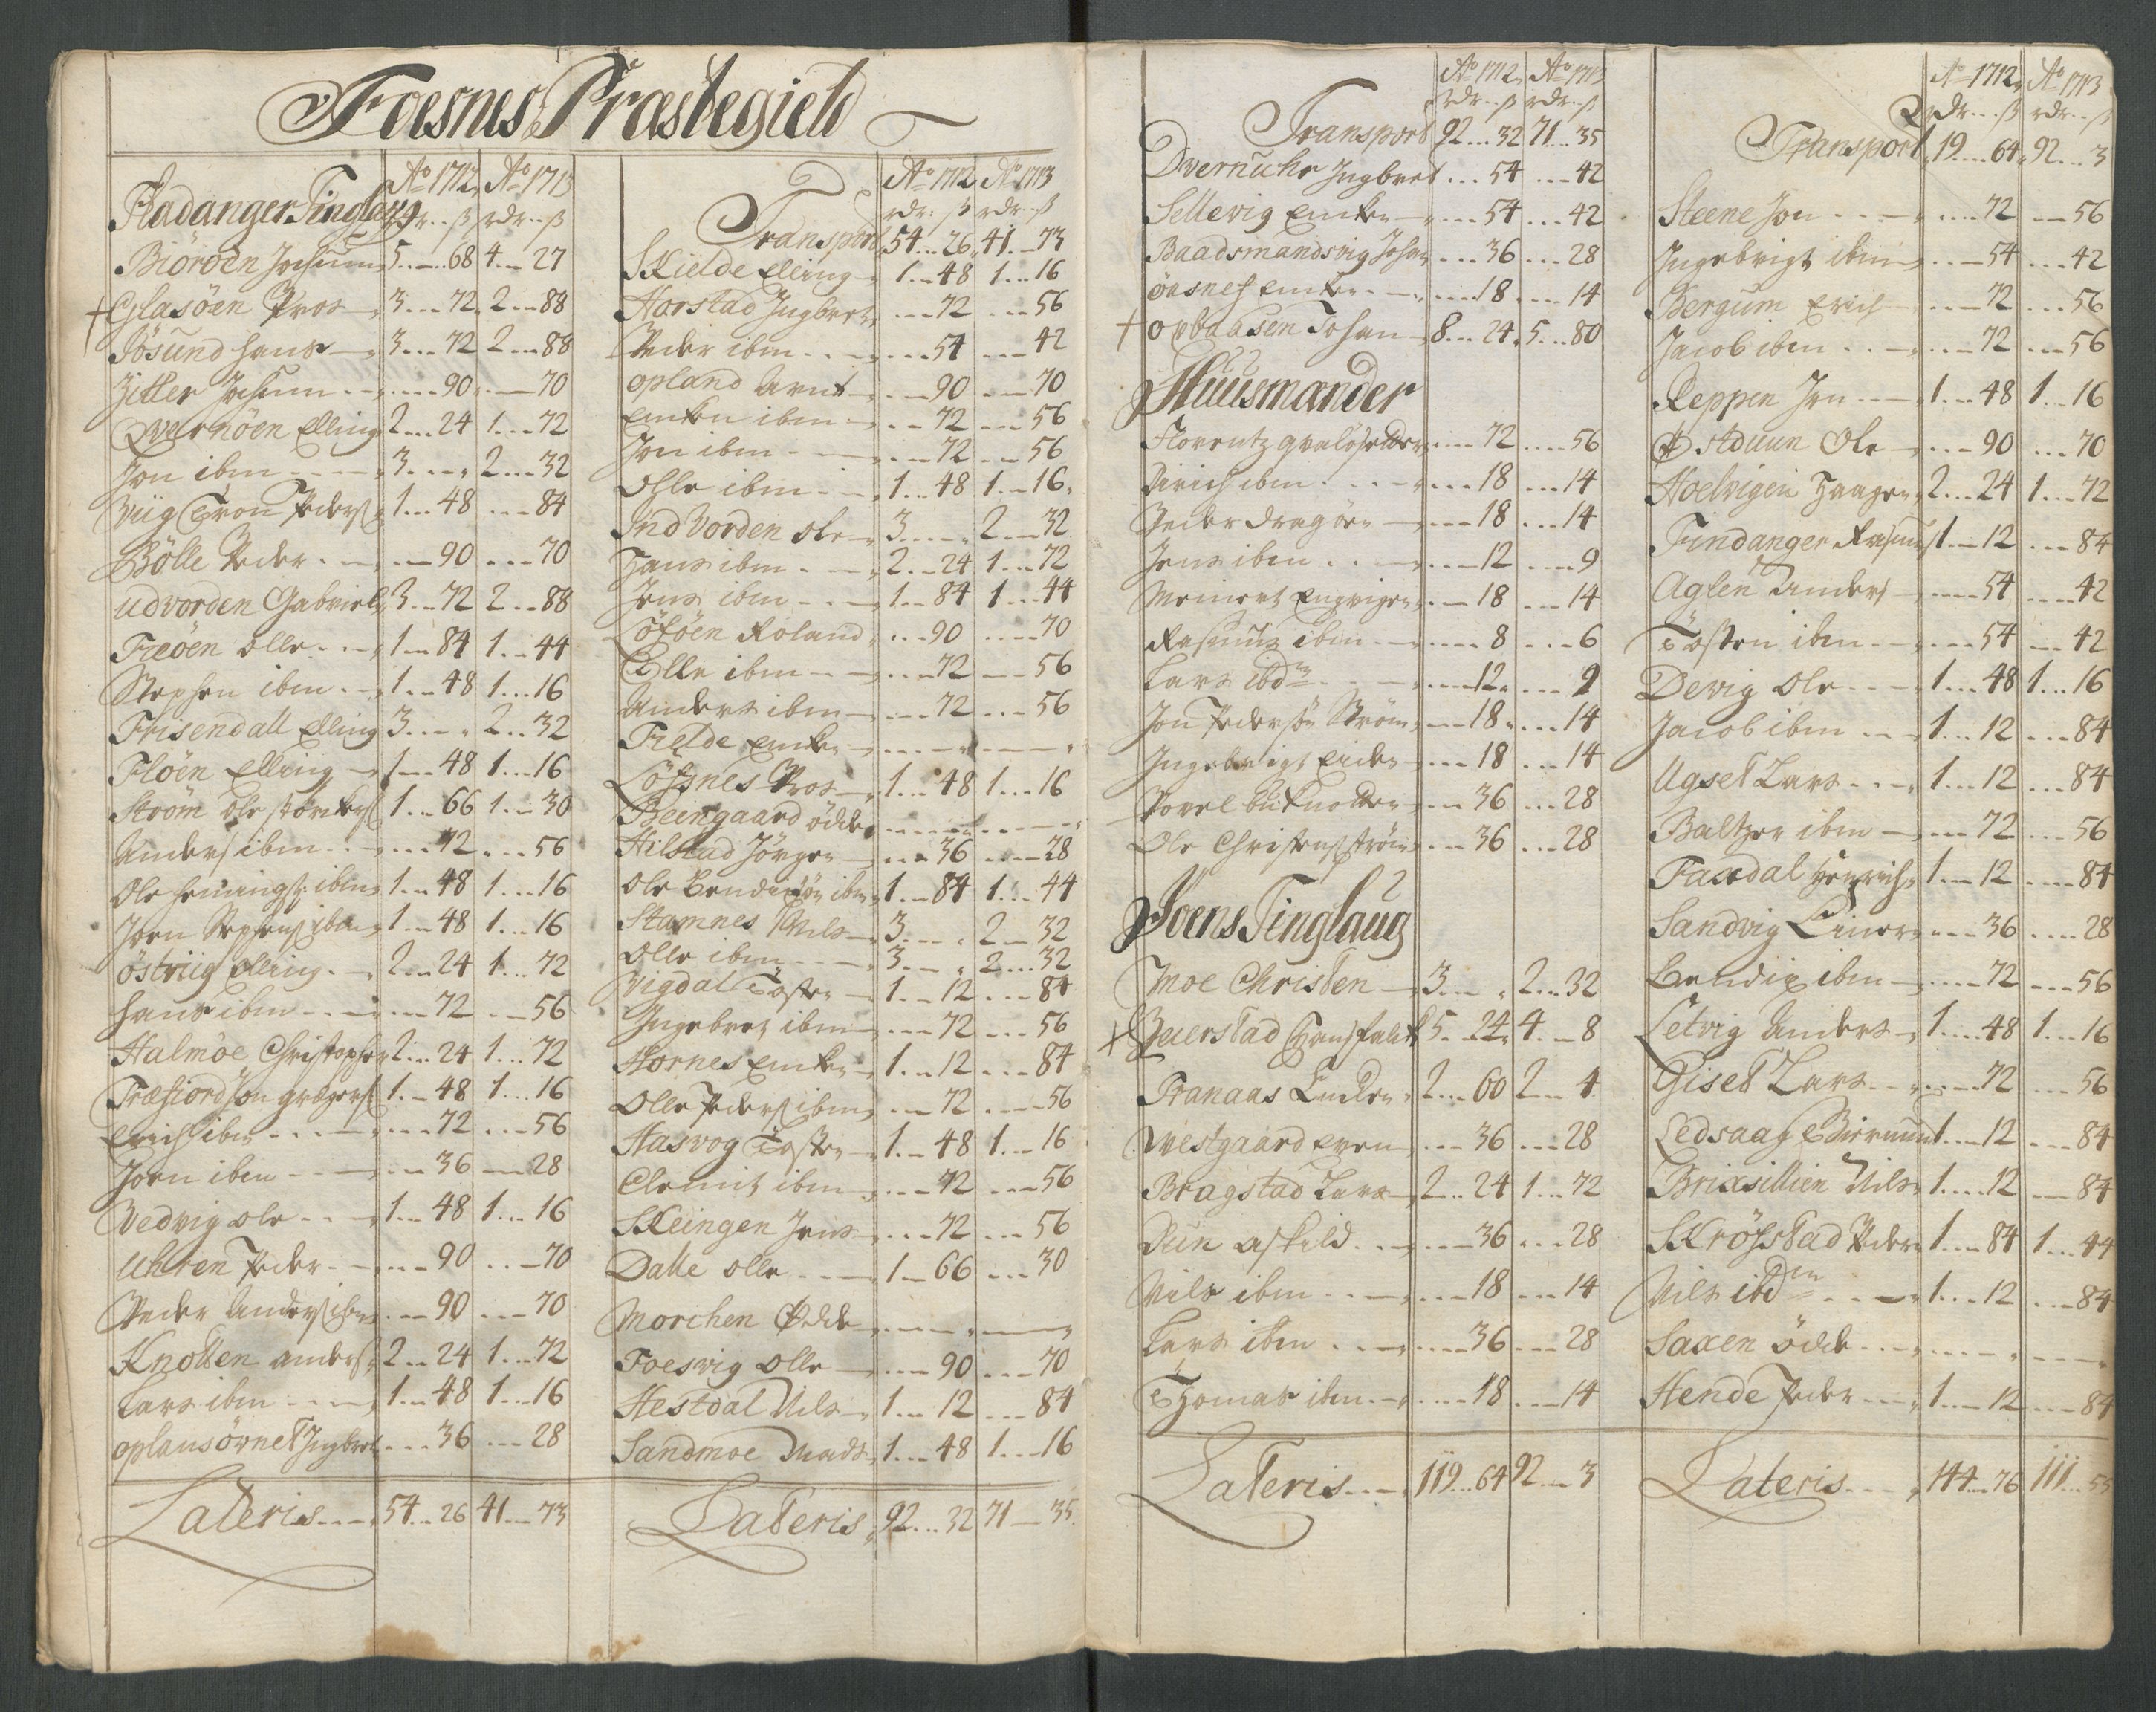 Foesnes Præstegield
Radanger Tinglaug Ao 1712 Ao 1713
rdr..ß rdr..ß
Biöröen Jochum 5...68 4...27
+ Glasöen Pros 3...72 2...88
Jösund hans 3...72 2...88
Zitter Jochum ...90 ...70
Qvernöen Elling 2...24 1...72
Jon ibm 3... 2...32
Viig Tron Peders 1...48 ...84
Bölle Peder ...90 ...70
Udvorden Gabriel 3...72 2...88
Fieöen Olle 1...84 1...44
Stephen ibm 1...48 1...16
Frisendall Elling 3... 2...32
Flöen Elling 1...48 1...16
Ström Ole 1...66 1...30
Anders ibm ...72 ...56
Ole hemings ibm 1...48 1...16
Joen Stephens ibm 1...48 1...16
östviig Elling 2...24 1...72
hans ibm ...72 ...56
Halmöe Christopher 2...24 1...72
Træfiord Jon gregers 1...48 1...16
Erich ibm ...72 ...56
Joen ibm ...36 ...28
Vedvig ole 1...48 1...16
Uhren Peder ...90 ...70
Peder Anders ibm ...90 ...70
Knotten anders 2...24 1...72
Lars ibm 1...48 1...16
oplansörnet Ingbret ...36 ...28
Lateris 54...26 41...73
Ao 1712 Ao 1713
rdr..ß rdr..ß
Transport 54...26 41...73
Skielde Elling 1...48 1...16
Harstad Ingbret ...72 ...56
Peder ibm ...54 ...42
opland Arnt ...90 ...70
Encken ibm ...72 ...56
Jon ibm ...72 ...56
Ohle ibm 1...48 1...16
Indvorden ole 3... 2...32
Hans ibm 2...24 1...72
Jens ibm 1...84 1...44
Löföen Roland ...90 ...70
Elle ibm ...72 ...56
Anders ibm ...72 ...56
Fielde Encke ... ...
Löfsnes Pros 1...48 1...16
Beengaard öde ... ...
Hilstad Jörgen ...36 ...28
Ole Bendixön ibm 1...84 1...44
Stamnes Nils 3... 2...32
Olle ibm 3... 2...32
Vigdal Tosten 1...12 ...84
Ingebret ibm ...72 ...56
Hornes Encke 1...12 ...84
Olle Peders ibm ...72 ...56
Hasvog Tosten 1...48 1...16
Clemit ibm ...72 ...56
Skeingen Jens ...72 ...56
Dalle olle 1...66 ...30
Morchen Ödde ... ...
Foesvig Olle ...90 ...70
Hestdal Nils 1...12 ...84
Sandmoe Mads 1...48 1...16
Lateris 92...32 71...35
Ao 1712 Ao 1713
rdr..ß rdr..ß
Transport 92...32 71...35
Dvernuhr Ingbret ...54 ...42
Sellevig Encken ...54 ...42
Baadsmandsvig Johan ...36 ...28
öasnes Encke ...18 ...14
+ opbaasen Johan 8...24 5...80
Huusmander
Florentz ...72 ...56
Dirich ibm ...18 ...14
Peder dragöen ...18 ...14
Jens ibm ...12 ...9
Meinert Engvigen ...18 ...14
Rasmus ibm ...8 ...6
Lars ibdm ...12 ...9
Jon Pedersön Ström ...18 ...14
Ingebrigt ...18 ...14
Povel ...36 ...28
Ole Christens ström ...36 ...28
Joens Tinglaug
Moe Christen 3... 2...32
+ Beierstad Hans falck 5...24 4...8
Tranaas Endre 2...60 2...4
Westgaard Even ...36 ...28
Bragstad Lars 2...24 1...72
Duun askild ...36 ...28
Nils ibm ...18 ...14
Lars ibm ...36 ...28
Thomas ibm ...18 ...14
Lateris 119...64 92...3
Ao 1712 Ao 1713
rdr..ß rdr..ß
Transport 19...64 92...3
Steene Jon ...72 ...56
Ingebrigt ibm ...54 ...42
Bergum Erich ...72 ...56
Jacob ibm ...72 ...56
Reppen Jon 1...48 1...16
Østduun Ole ...90 ...70
Hoelvigen Haagen 2...24 1...72
Findanger Rasmus 1...12 ...84
Aglen Anders ...54 ...42
Tosten ibm ...54 ...42
Devig Ole 1...48 1...16
Jacob ibm 1...12 ...84
Ugset Lars 1...12 ...84
Baltzer ibm ...72 ...56
Faxdal Henrich 1...12 ...84
Sandvig Einer ...36 ...28
Bendix ibm ...72 ...56
Letvig Anders 1...48 1...16
Giset Lars ...72 ...56
Ledsaag 1...12 ...84
Brixsillien Nils 1...12 ...84
Skröfstad Peder 1...84 1...44
Nils ibdm 1...12 ...84
Saxen ödde ... ...
Hende Peder 1...12 ...84
Lateris 144...76 111...55